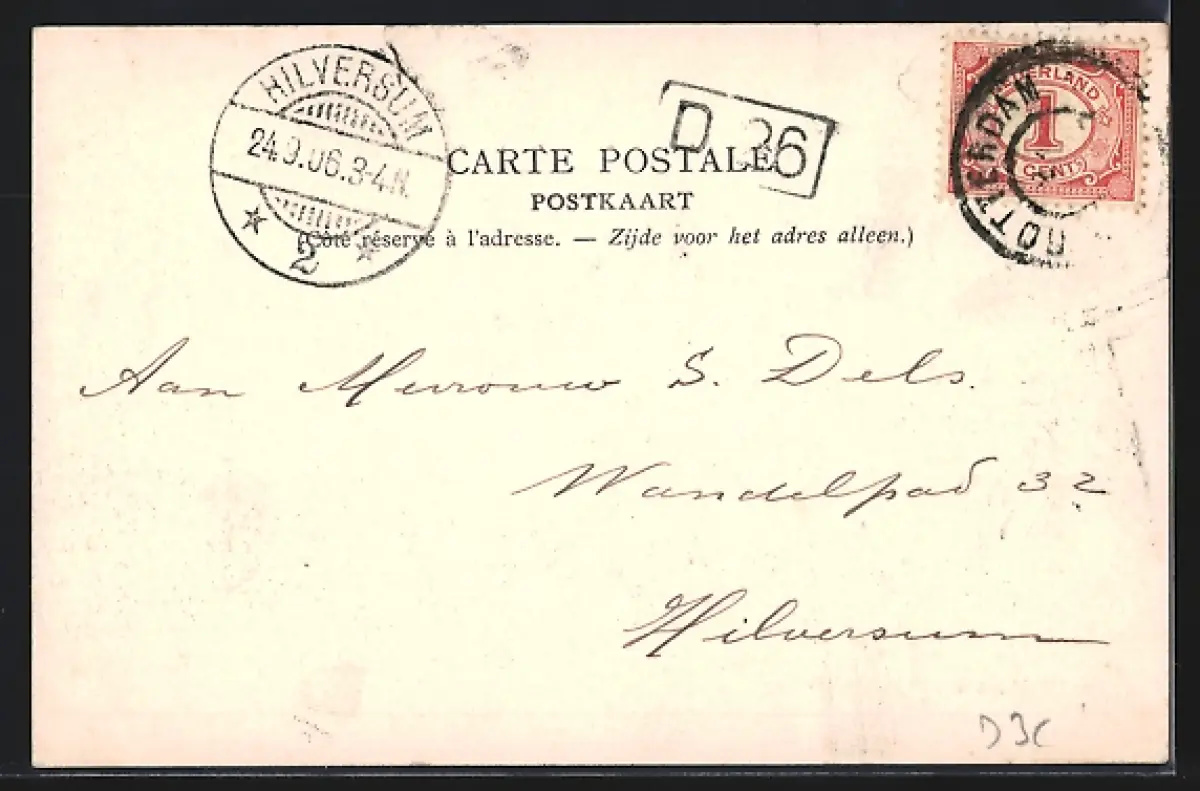 HILVERSUM
24.9.06.3-4.N.
2
D 26
NEDERLAND
1
CENT
OTTERDAM
CARTE POSTALE
POSTKAART
(Côté réservé à l'adresse. — Zijde voor het adres alleen.)
Aan Mevrouw S. Dels.
Wandelpad 32
Hilversum